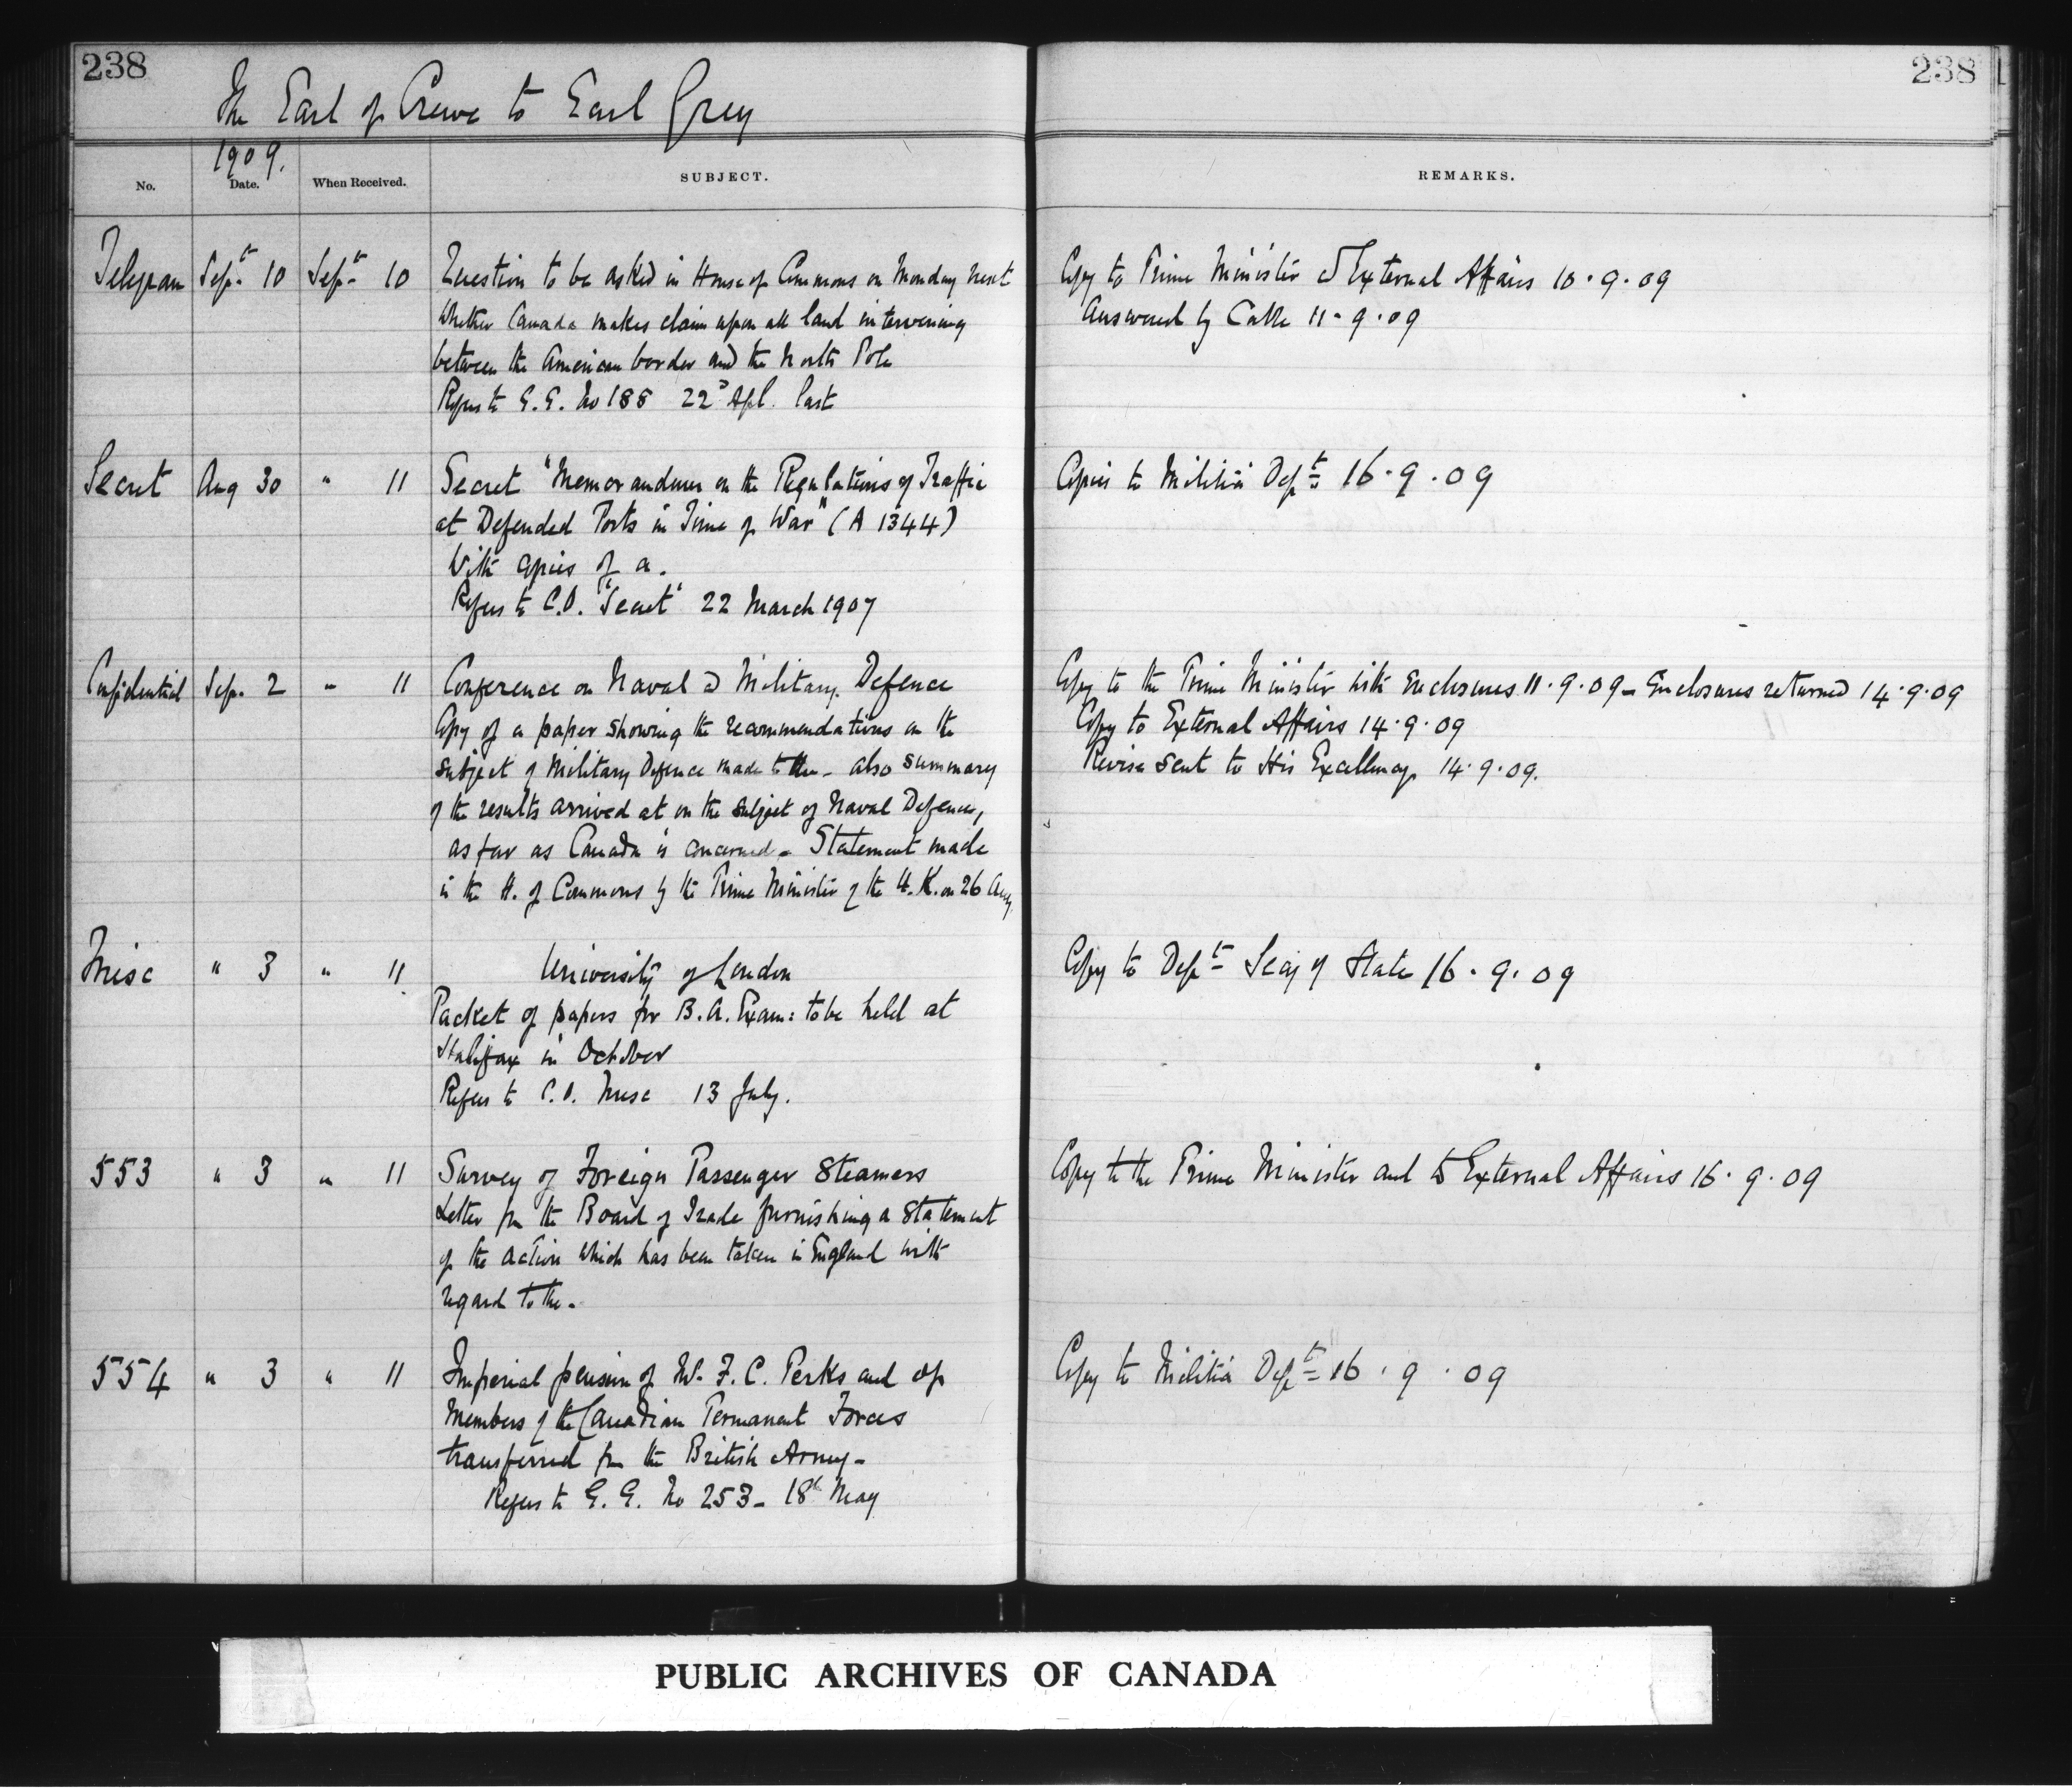 238
238
The Earl of Crewe to Earl Grey
1909.
No. Date. When Received. SUBJECT. REMARKS.
Telegram Sept. 10 Sept. 10 Question to be asked in House of Commons on Monday next Copy to Prime Minister & External Affairs 10.9.09
Whether Canada makes claim upon all land intervening Answered by Cable 11.9.09
between the American border and the North Pole
Refers to G.G. No 188 22d Apl. last
Secret Aug 30 " 11 Secret "Memorandum on the Regulations of Traffic Copies to Militia Dept 16.9.09
at Defended Ports in Time of War" (A 1344)
With copies of a.
Refers to C.O. "Secret" 22 March 1907
Confidential Sep. 2 " 11 Conference on Naval & Military Defence Copy to the Prime Minister with Enclosures 11.9.09 - Enclosures returned 14.9.09
Copy of a paper showing the recommendations on the Copy to External Affairs 14.9.09
subject of Military Defence made to the - also summary Revise sent to His Excellency 14.9.09.
of the results arrived at on the subject of Naval Defence,
as far as Canada is concerned - Statement made
in the H. of Commons by the Prime Minister of the U.K. on 26 Aug
Misc " 3 " 11 University of London Copy to Dept Secy of State 16.9.09
Packet of papers for B.A. Exam: to be held at
Halifax in October
Refers to C.O. Misc 13 July.
553 " 3 " 11 Survey of Foreign Passenger Steamers Copy to the Prime Minister and to External Affairs 16.9.09
Letter fm the Board of Trade furnishing a statement
of the action which has been taken in England with
regard to the -
554 " 3 " 11 Imperial pension of W. F. C. Perks and of Copy to Militia Dept 16.9.09
Members of the Canadian Permanent Forces
transferred fm the British Army -
Refers to G.G. No 253 - 18th May
PUBLIC ARCHIVES OF CANADA